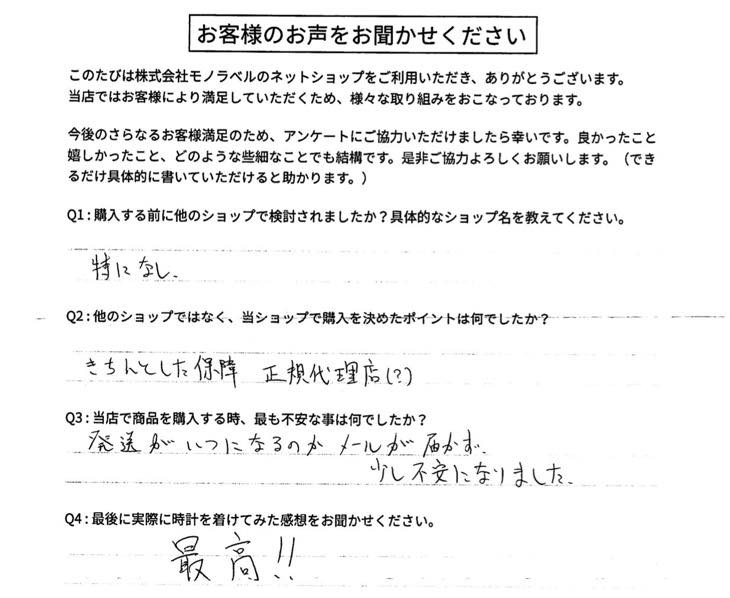 お客様のお声をお聞かせください
このたびは株式会社モノラベルのネットショップをご利用いただき、ありがとうございます。
当店ではお客様により満足していただくため、様々な取り組みをおこなっております。
今後のさらなるお客様満足のため、アンケートにご協力いただけましたら幸いです。良かったこと
嬉しかったこと、どのような些細なことでも結構です。是非ご協力よろしくお願いします。（でき
るだけ具体的に書いていただけると助かります。）
Q1:購入する前に他のショップで検討されましたか？具体的なショップ名を教えてください。
特になし.
Q2:他のショップではなく、当ショップで購入を決めたポイントは何でしたか？
きちんとした保障 正規代理店(?)
Q3:当店で商品を購入する時、最も不安な事は何でしたか？
発送がいつになるのか メールが届かず、
少し不安になりました.
Q4:最後に実際に時計を着けてみた感想をお聞かせください。
最高!!